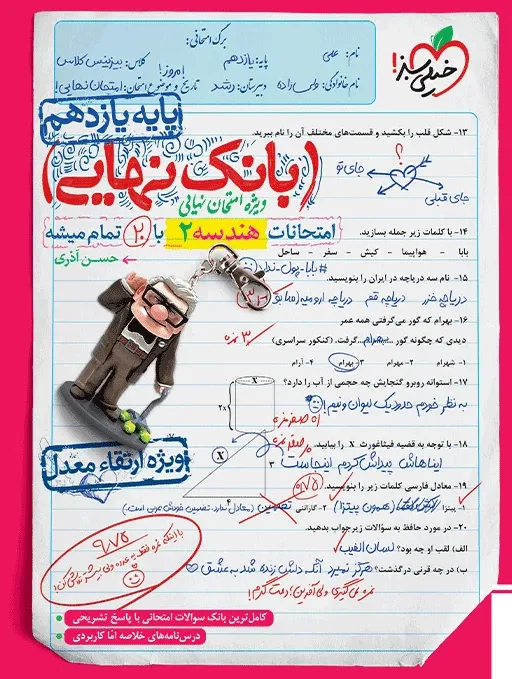 خیلی سبز!
برگ امتحانی:
نام: علی
پایه: یازدهم
کلاس: بیزینس کلاس
نام خانوادگی: ولی‌زاده
دبیرستان: رشد
امروز!
تاریخ و موضوع امتحان: امتحان نهایی!
پایه یازدهم
۱۳- شکل قلب را بکشید و قسمت‌های مختلف آن را نام ببرید.
؟
جای تو
جای قبلی
(بانک نهایی)
ویژه امتحان نهایی
امتحانات هندسه ۲ با ۲۰ تمام میشه
حسن آذری
۱۴- با کلمات زیر جمله بسازید.
بابا - هواپیما - کیش - سفر - ساحل
#بابا-پول-نداره
۱۵- نام سه دریاچه در ایران را بنویسید.
دریاچه خزر دریاچه قم دریاچه ارومیه
۱۶- بهرام که گور می‌گرفتی همه عمر
دیدی که چگونه گور ...بهرام... گرفت. (کنکور سراسری)
۳ نمره
۱- شهرام ۲- مهرام ۳- بهرام ۴- آرام
۱۷- استوانه روبرو گنجایش چه حجمی از آب را دارد؟
به نظر خودم حدود یک لیوان و نیم!
X
2X
صفر نمره
۱۸- با توجه به قضیه فیثاغورث X را بیابید.
ایناهاش پیداش کردم اینجاست
X
۳
۴
ویژه ارتقاء معدل
۱۹- معادل فارسی کلمات زیر را بنویسید.
۰/۷۵
۱- پیتزا (همون پیتزا) ۲- گارانتی تضمین
(معادل ندارد. تضمین خودش عربی است)
۲۰- در مورد حافظ به سؤالات زیر جواب بدهید.
الف) لقب او چه بود؟ لسان الغیب
ب) در چه قرنی درگذشت؟ هرگز نمیرد آنکه دلش زنده شد به عشق
نمره نمی‌گیری ولی آفرین! دمت گرم!
۹/۷۵
کامل‌ترین بانک سوالات امتحانی با پاسخ تشریحی
درس‌نامه‌های خلاصه امّا کاربردی